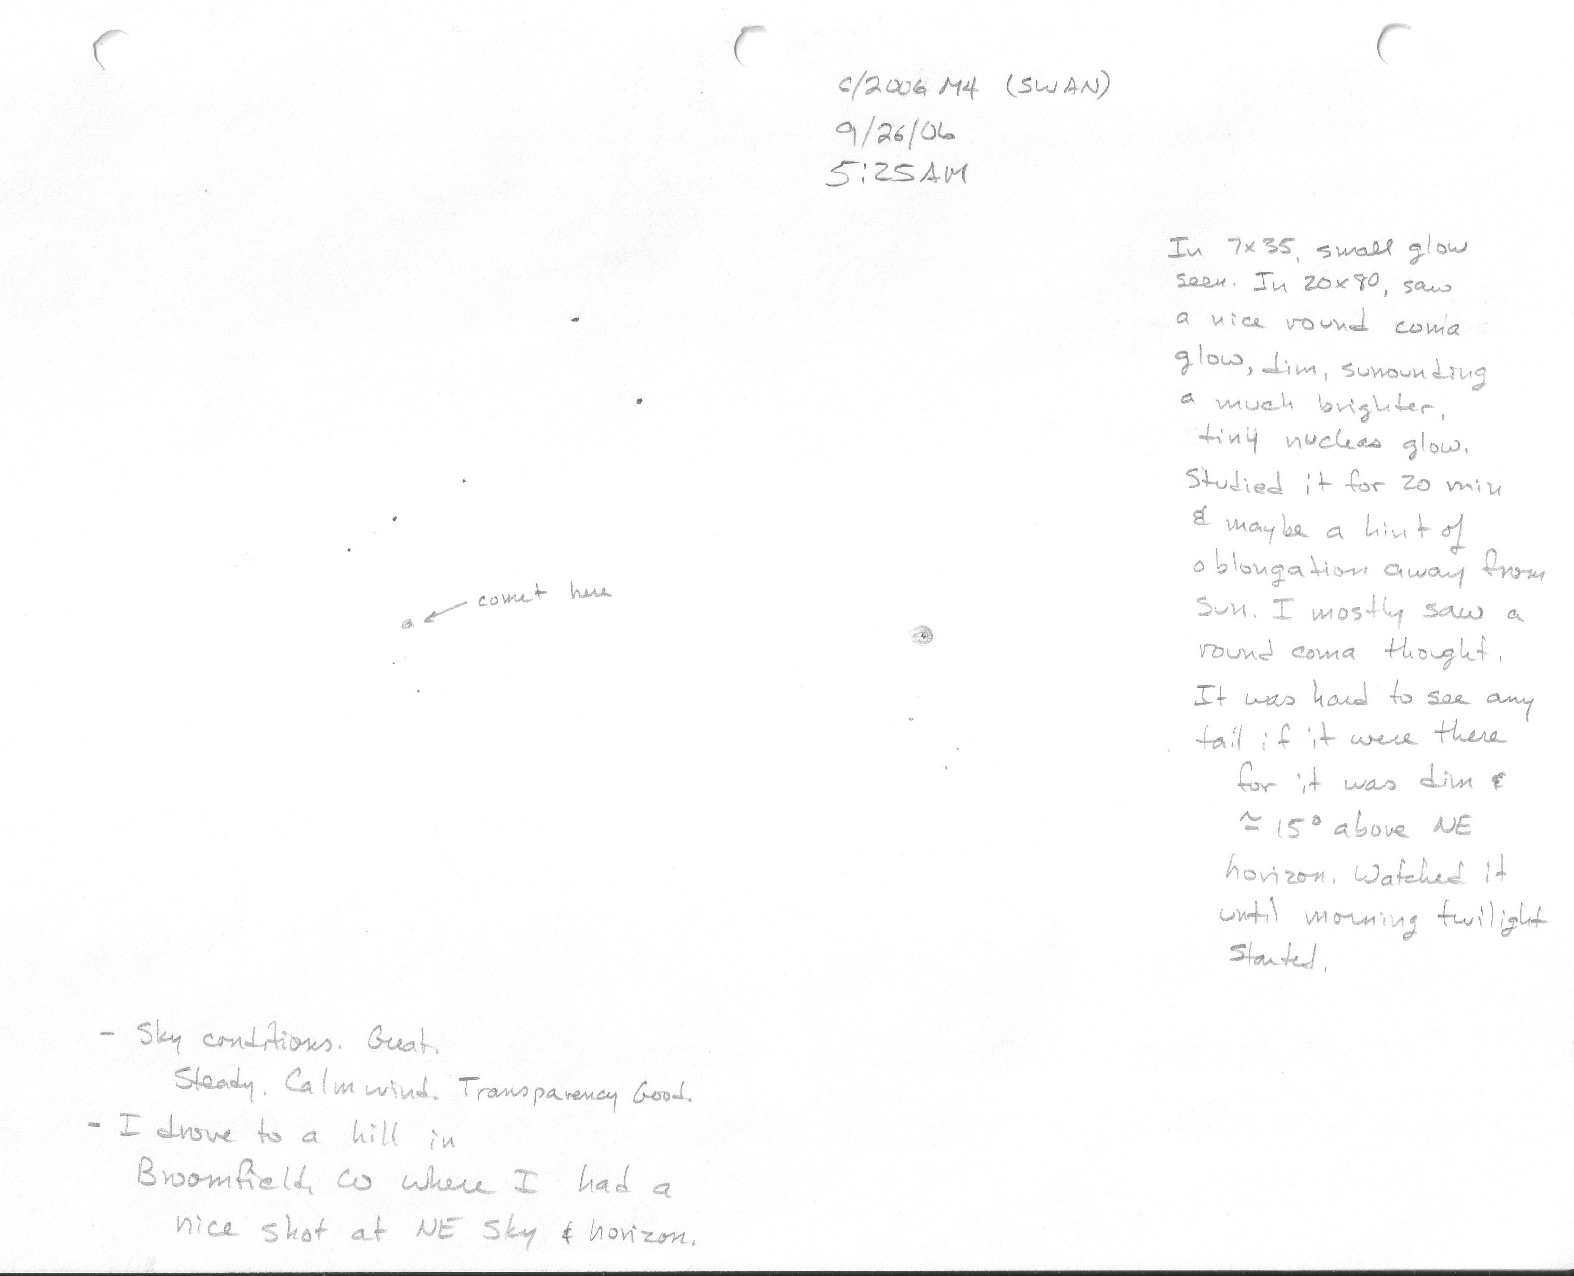 C/2006 M4 (SWAN)
9/26/06
5:25AM
In 7x35, small glow
seen. In 20x80, saw
a nice round coma
glow, dim, surrounding
a much brighter,
tiny nucleas glow.
Studied it for 20 min
& maybe a hint of
oblongation away from
Sun. I mostly saw a
round coma thought.
It was hard to see any
tail if it were there
for it was dim &
≃ 15° above NE
horizon. Watched it
until morning twilight
started.
comet here
- Sky conditions. Great.
Steady. Calm wind. Transparency Good.
- I drove to a hill in
Broomfield, CO where I had a
nice shot at NE Sky & horizon.